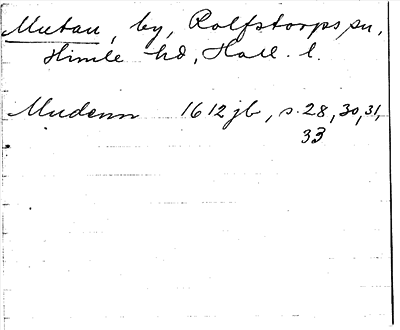 Mutan, by, Rolfstorps sn,
Himle hd, Hall. l.
Mudenn 1612 jb, s. 28, 30, 31,
33